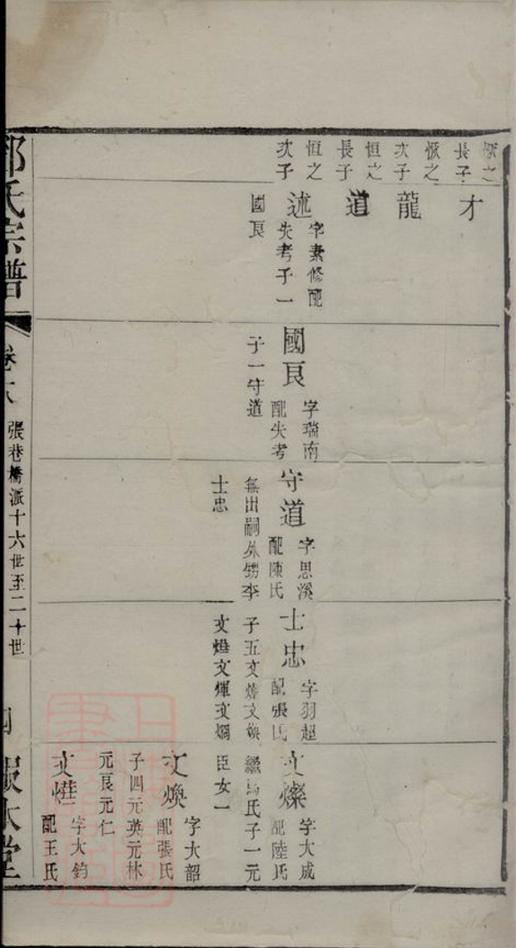 恢之
長子
才
恢之
次子
龍
恒之
長子
道
恒之
次子
述
字素修配
失考子一
國良
國良
字瑞南
配失考
子一守道
守道
字思溪
配陳氏
無出嗣外甥李
士忠
士忠
字羽超
配張氏
子五文燦文煥
文燈文煇文炯
文燦
字大成
配陸氏
繼馬氏子一元
臣女一
文煥
字大韶
配張氏
子四元英元林
元良元仁
字大鈞
配王氏
氏宗譜
張巷橋派十六世至二十世
報本堂